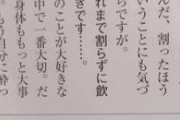 んだ、割ったほう
いうことにも気づ
らですが。
れまで割らずに飲
ぎです……。
のことが大好きな
中で一番大切。だ
身体ももっと大事
。もう自分に酔っ